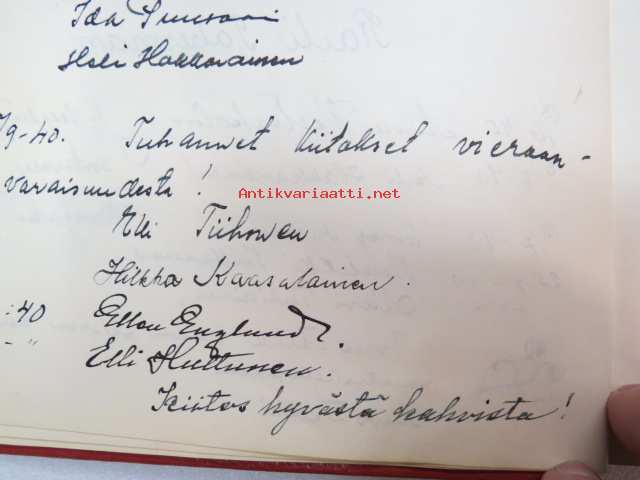 Ida
Heli Hakkarainen
/9-40. Tuhannet kiitokset vieraan-
varaisuudesta!
Antikvariaatti.net
Elli Tiihonen
Hilkka Kaasalainen.
:40 Ellen Englund.
-"- Elli Huttunen.
Kiitos hyvästä kahvista!
Antikvariaatti.net